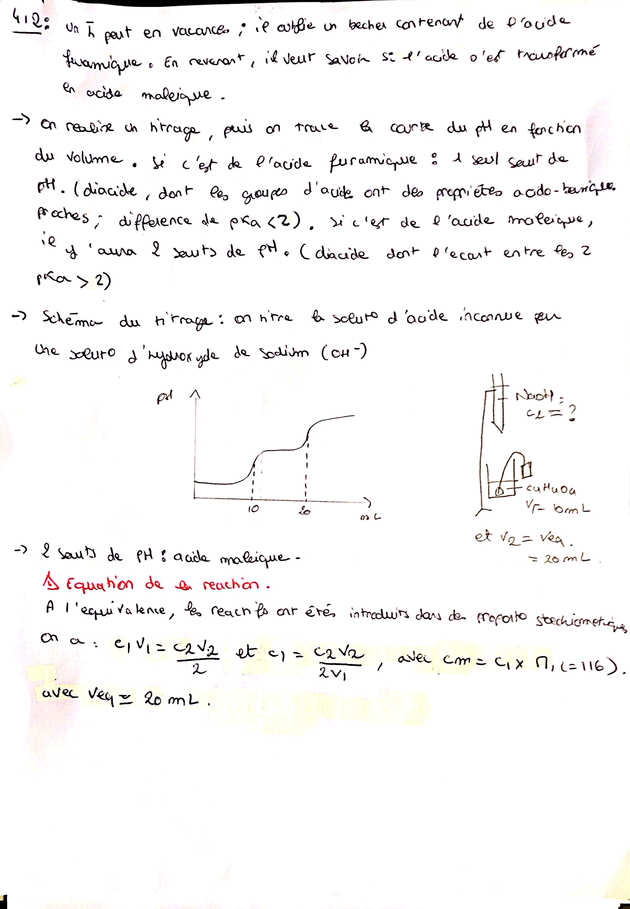 412: Un h peut en vacances ; il oublie un becher contenant de l'acide
furamique. En revenant, il veut savoir si l'acide s'est transformé
en acide maleique.
-> On realise un titrage, puis on trace la courbe du pH en fonction
du volume. Si c'est de l'acide furamique : 1 seul saut de
pH. (diacide, dont les groupes d'acide ont des proprietés acido-basiques
proches ; difference de pKa < 2). Si c'est de l'acide maleique,
il y'aura 2 sauts de pH. (diacide dont l'ecart entre les 2
pKa > 2)
-> Schéma du titrage : on titre la soluto d'acide inconnue par
une soluto d'hydroxyde de sodium (OH-)
pH
10
20
mL
NaOH :
c2 = ?
C4H4O4
V1 = 10mL
et V2 = Veq.
= 20mL.
-> 2 sauts de PH : acide maleique.
Equation de la reaction.
A l'equivalence, les reactifs ont étés introduits dans des proporto stoechiometriques
on a : c1V1 = c2V2/2 et c1 = c2V2/2V1, avec Cm = c1 x M1 (=116).
avec Veq = 20 mL.